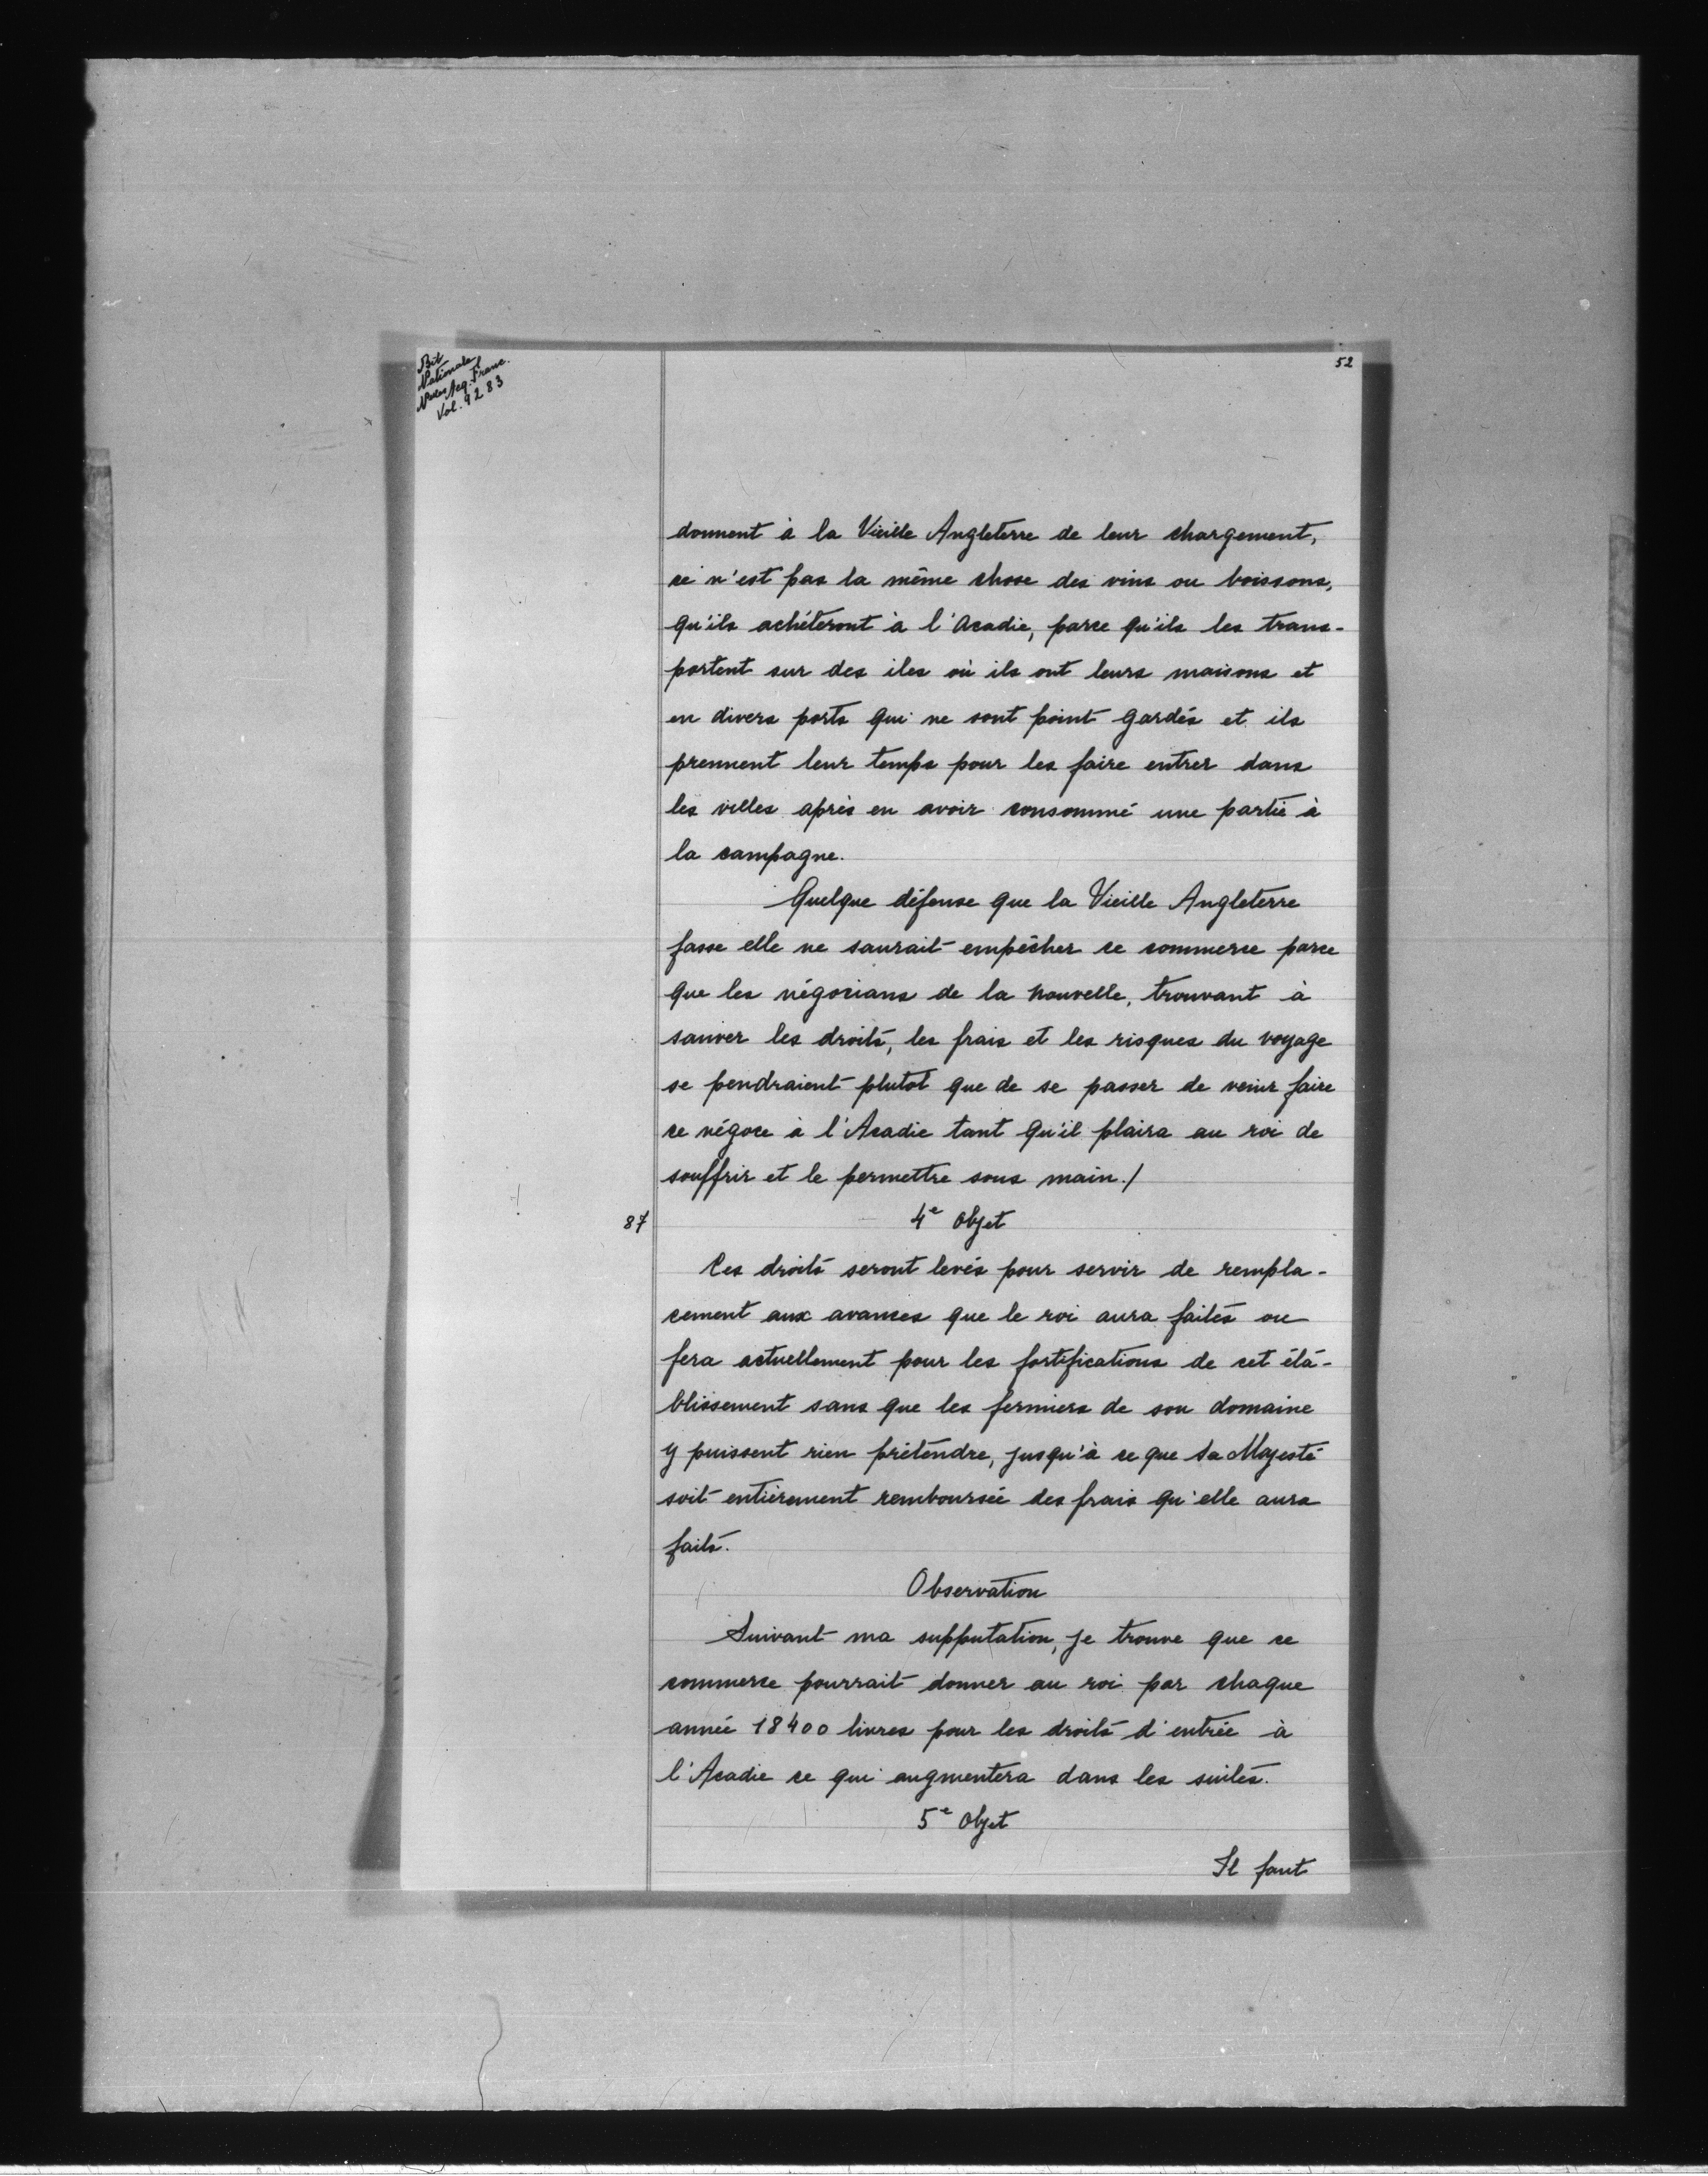 Bib
Nationale
Nvelles Acq. Franc.
Vol. 9283
52
donnent à la Vieille Angleterre de leur chargement,
ce n'est pas la même chose des vins ou boissons,
qu'ils achèteront à l'Acadie, parce qu'ils les trans-
portent sur des iles où ils ont leurs maisons et
en divers ports qui ne sont point gardés et ils
prennent leur temps pour les faire entrer dans
les villes après en avoir consommé une partie à
la campagne.
Quelque défense que la Vieille Angleterre
fasse elle ne saurait empêcher ce commerce parce
que les négocians de la nouvelle, trouvant à
sauver les droits, les frais et les risques du voyage
se pendraient plutôt que de se passer de venir faire
ce négoce à l'Acadie tant qu'il plaira au roi de
souffrir et le permettre sous main./
87
4e Objet
Ces droits seront levés pour servir de rempla-
cement aux avances que le roi aura faites ou
fera actuellement pour les fortifications de cet éta-
blissement sans que les fermiers de son domaine
y puissent rien prétendre, jusqu'à ce que Sa Majesté
soit entièrement remboursée des frais qu'elle aura
faits.
Observation
Suivant ma supputation, je trouve que ce
commerce pourrait donner au roi par chaque
année 18400 livres pour les droits d'entrée à
l'Acadie ce qui augmentera dans les suites.
5e Objet
Il faut